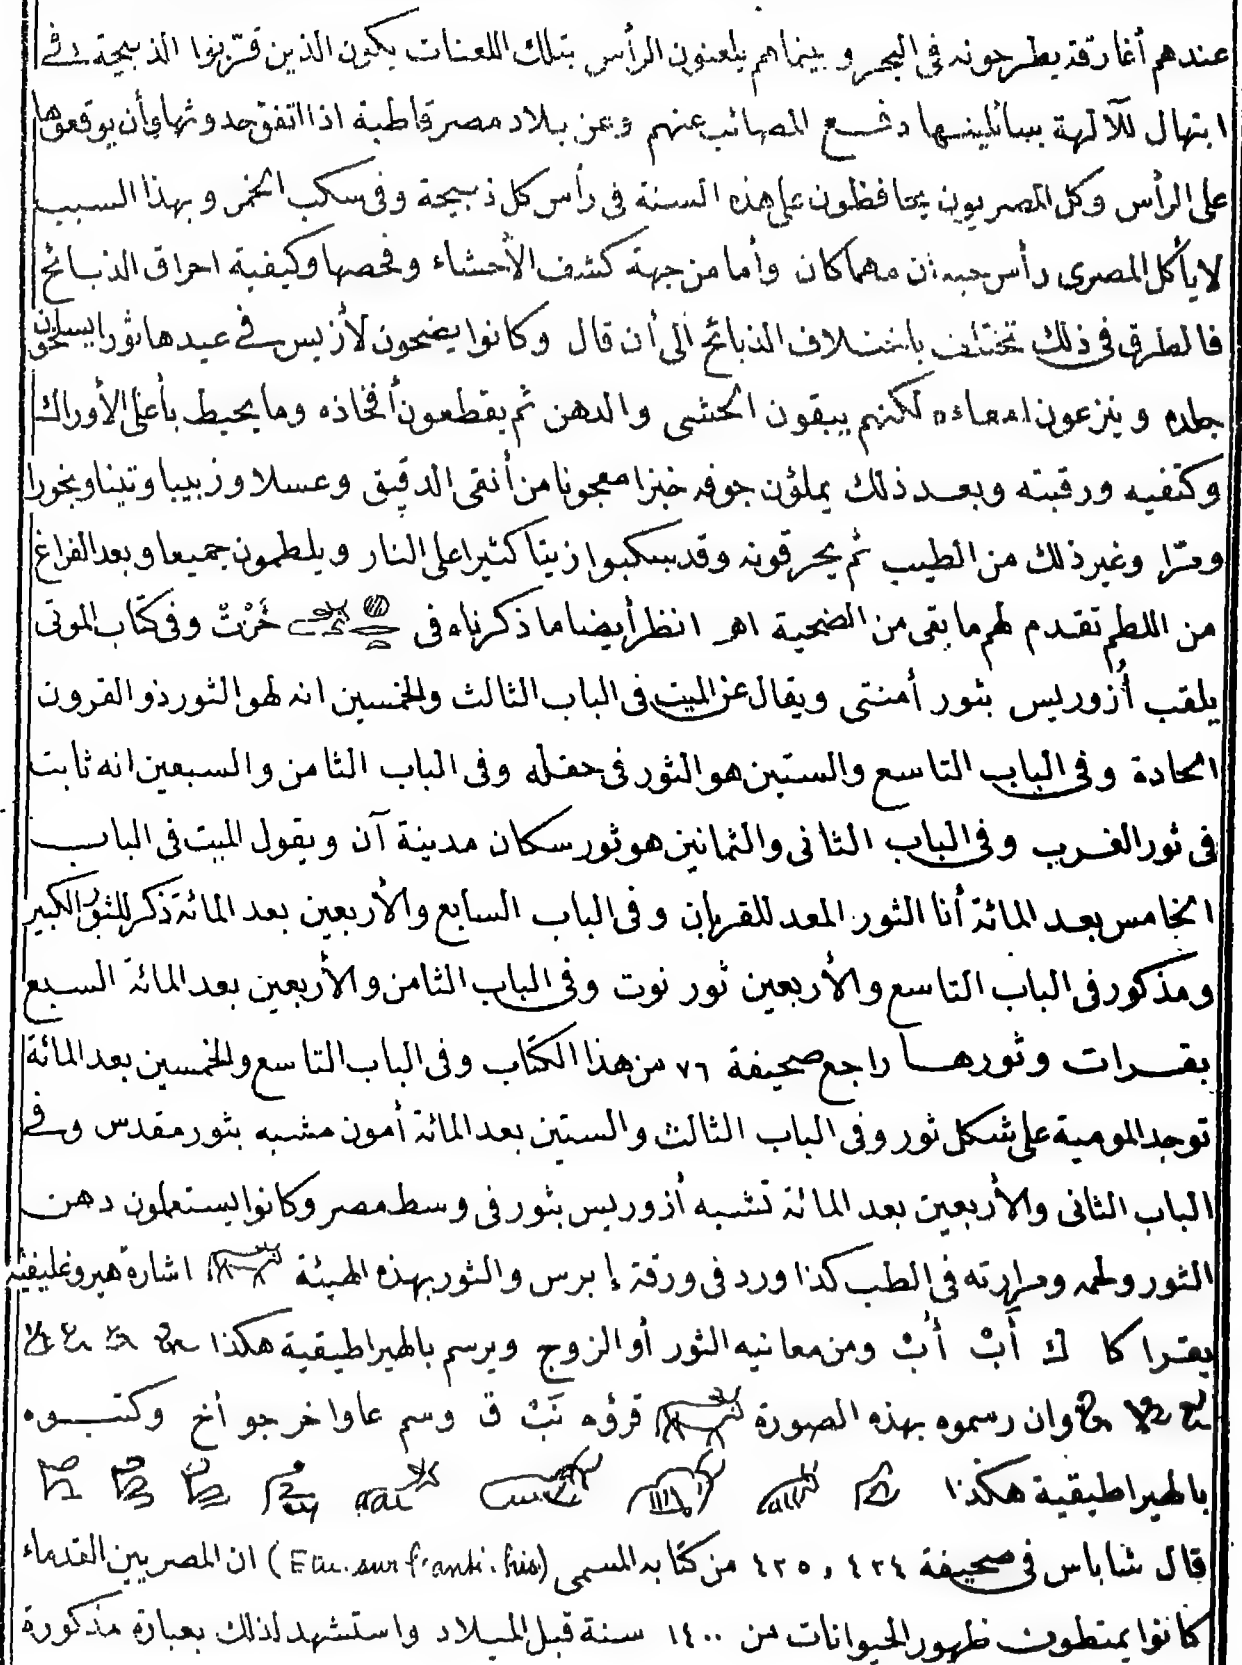 عندهم أغارقة يطرحونه فى البحر و بينماهم يلعنون الرأس بتلك اللعنات يكون الذين قرّبوا الذبيحة فى
ابتهال للآلهة يسائلينها دفع المصائب عنهم وعن بلاد مصر قاطبة اذا اتفق حدوثها وأن يوقعوها
على الرأس وكل المصريون يحافظون على هذه السنة فى رأس كل ذبيحة وفى سكب الخمر وبهذا السبب
لا يأكل المصرى رأس حيوان مهما كان وأما من جهة كشف الأحشاء وفحصها وكيفية احراق الذبائح
فالطرق فى ذلك تختلف باختلاف الذبائح الى أن قال وكانوا يضحون لأزيس فى عيدها ثورا يسلخون
جلده وينزعون امعاءه لكنهم يبقون الحشى والدهن ثم يقطعون أفخاذه وما يحيط بأعلى الأوراك
وكتفيه ورقبته وبعد ذلك يملؤن جوفه خبزا معجونا من أنقى الدقيق وعسلا وزبيبا وتينا وبخورا
ومرّا وغير ذلك من الطيب ثم يحرقونه وقد سكبوا زيتا كثيرا على النار ويلطمون جميعا وبعد الفراغ
من اللطم تقدم لهم ما بقى من الضحية اهـ انظر أيضا ما ذكرناه فى خَرْتْ وفى كتاب الموتى
يلقب أزوريس بثور أمنتى ويقال عن الميت فى الباب الثالث والخمسين انه لهو الثور ذو القرون
الحادة وفى الباب التاسع والستين هو الثور فى حقله وفى الباب الثامن والسبعين انه ثابت
فى ثور الغرب وفى الباب الثانى والثمانين هو ثور سكان مدينة آن ويقول الميت فى الباب
الخامس بعد المائة أنا الثور المعد للقربان وفى الباب السابع والأربعين بعد المائة ذكر للثور الكبير
ومذكور فى الباب التاسع والأربعين ثور نوت وفى الباب الثامن والأربعين بعد المائة السبع
بقرات وثورها راجع صحيفة ٧٦ من هذا الكتاب وفى الباب التاسع والخمسين بعد المائة
توجد المومية على شكل ثور وفى الباب الثالث والستين بعد المائة أمون مشبه بثور مقدس وفى
الباب الثانى والأربعين بعد المائة تشبه أزوريس بثور فى وسط مصر وكانوا يستعملون دهن
الثور ولحمه ومرارته فى الطب كذا ورد فى ورقة إبرس والثور بهذه الهيئة اشارة هيروغليفية
يقرا كا ك أَبْ أُبْ ومن معانيه الثور أو الزوج ويرسم بالهيراطيقية هكذا
وان رسموه بهذه الصورة قرؤه نَبْ ق وسم عاوا خر جو أخ وكتبوه
بالهيراطيقية هكذا
قال شاباس فى صحيفة ٤٢٤ و ٤٢٥ من كتابه المسمى (Etu. sur l'anti. his) ان المصريين القدماء
كانوا يمتطون ظهور الحيوانات من ١٤٠٠ سنة قبل الميلاد واستشهد لذلك بعبارة مذكورة